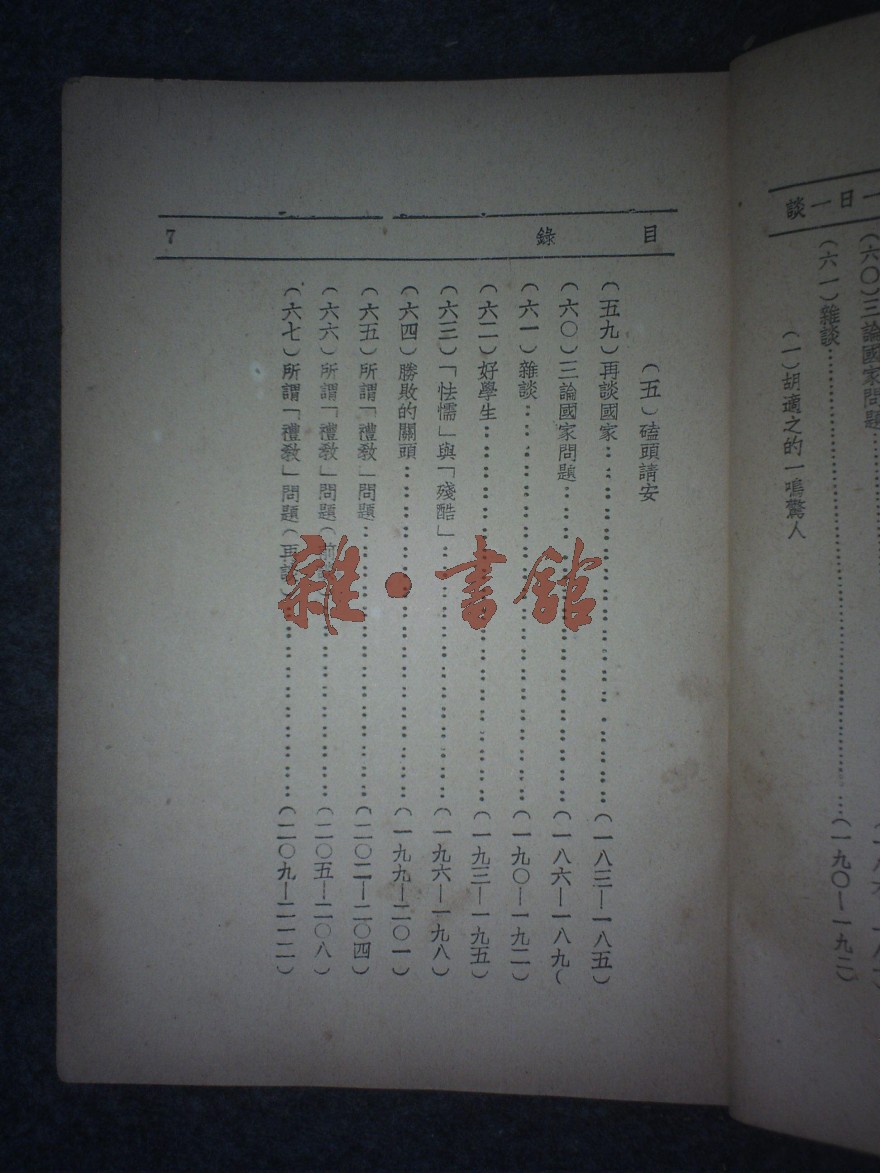 一日一談
(六〇)三論國家問題
(六一)雜談……(一九〇—一九二)
(一)胡適之的一鳴驚人
目錄 7
(五)磕頭請安
(五九)再談國家……(一八三—一八五)
(六〇)三論國家問題……(一八六—一八九(
(六一)雜談……(一九〇—一九二)
(六二)好學生……(一九三—一九五)
(六三)「怯懦」與「殘酷」……(一九六—一九八)
(六四)勝敗的關頭……(一九九—二〇一)
(六五)所謂「禮教」問題……(二〇二—二〇四)
(六六)所謂「禮教」問題(……(二〇五—二〇八)
(六七)所謂「禮教」問題(再……(二〇九—二一二)
雜·書館